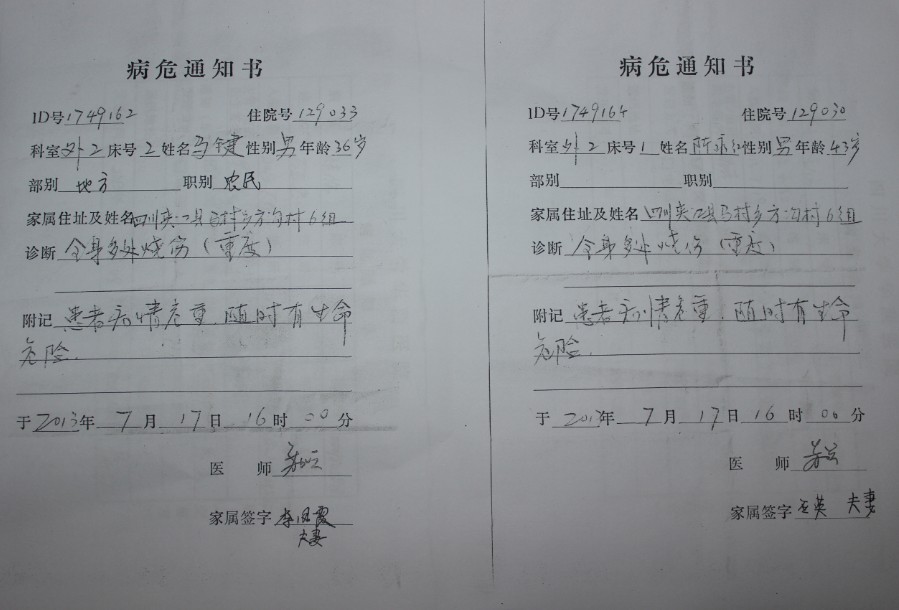 病危通知书
ID号1749162 住院号129033
科室外2床号2姓名马健性别男年龄36岁
部别 地方 职别 农民
家属住址及姓名四川夹江县马村乡方沟村6组
诊断 全身多处烧伤(重度)
附记 患者病情危重,随时有生命
危险.
于2013年7月17日16时20分
医师
家属签字
夫妻
病危通知书
ID号1749164 住院号129030
科室外2床号1姓名 性别男年龄43岁
部别 职别
家属住址及姓名 四川夹江县马村乡方沟村6组
诊断 全身多处烧伤(重度)
附记 患者病情危重,随时有生命
危险.
于 年7月17日16时00分
医师
家属签字 王英 夫妻